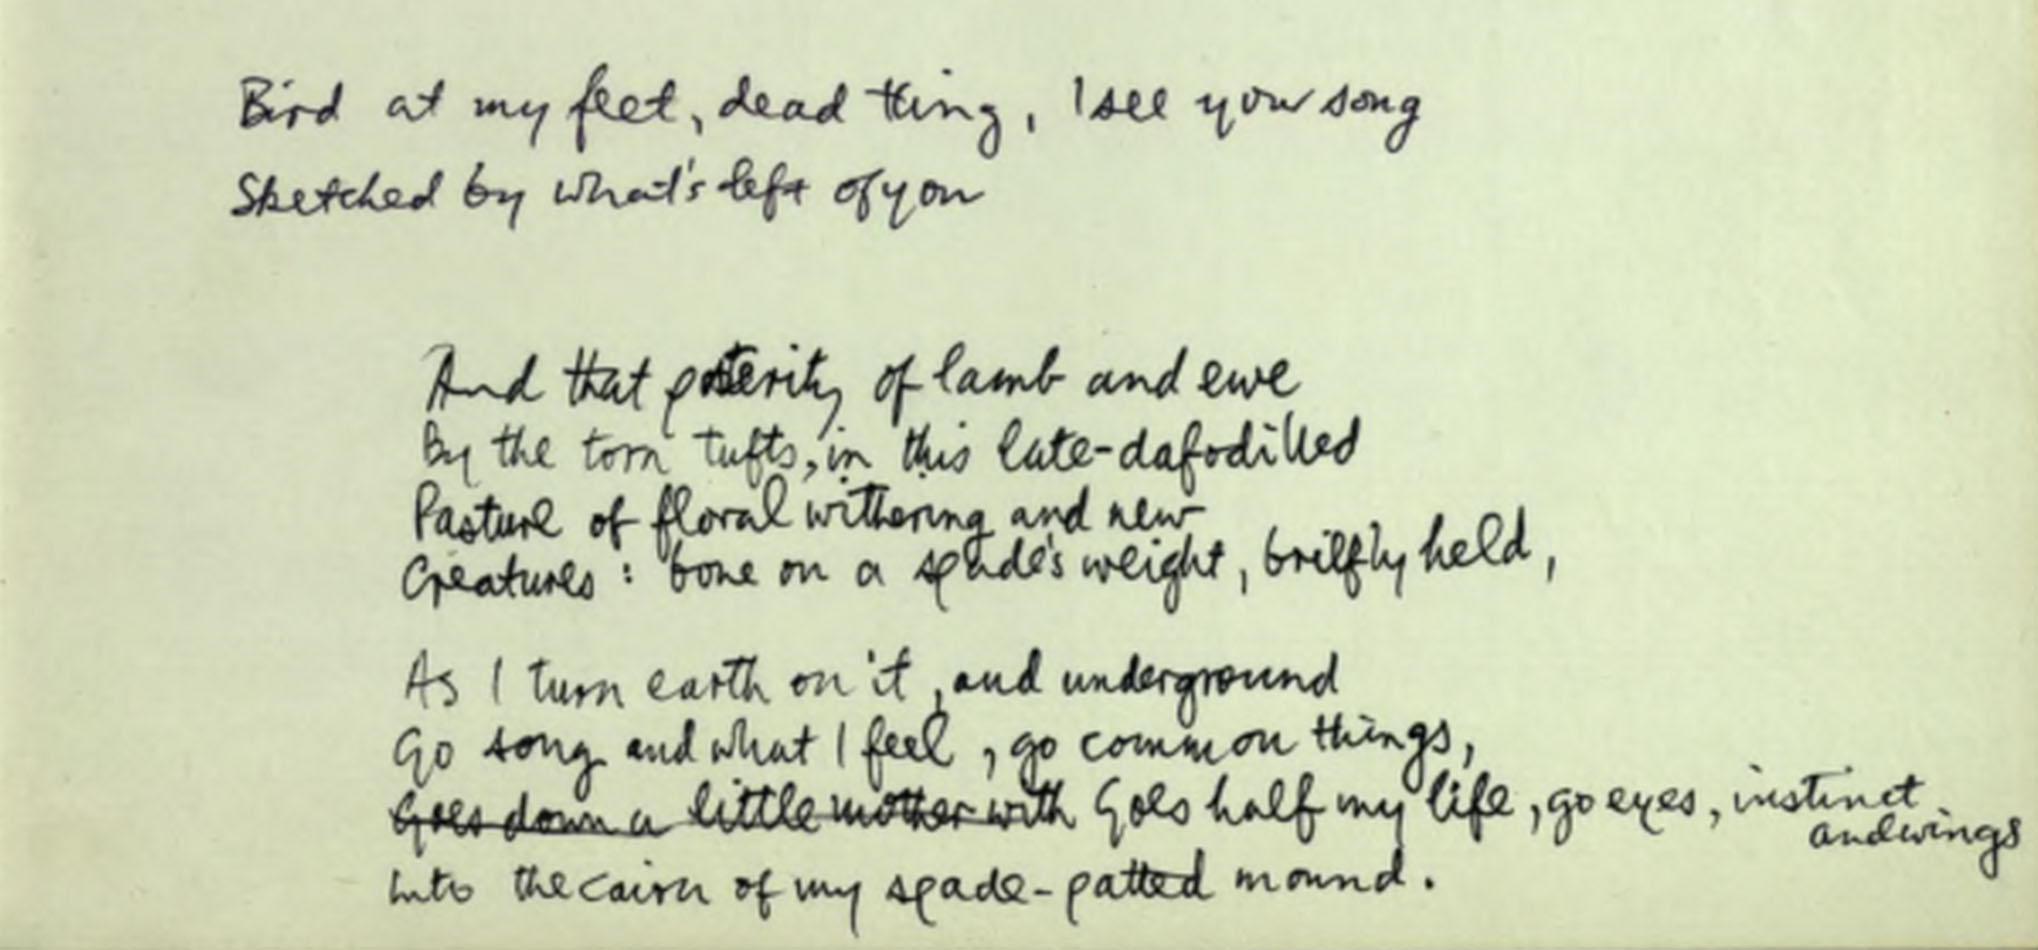 Bird at my feet, dead thing, I see your song
Sketched by what's left of you
And that posterity of lamb and ewe
By the torn tufts, in this late-dafodilled
Pasture of floral withering and new
Creatures: bone on a spade's weight, briefly held,
As I turn earth on it, and underground
Go song and what I feel, go common things,
Goes down a little mother with Goes half my life, go eyes, instinct
and wings
Into the cairn of my spade-patted mound.